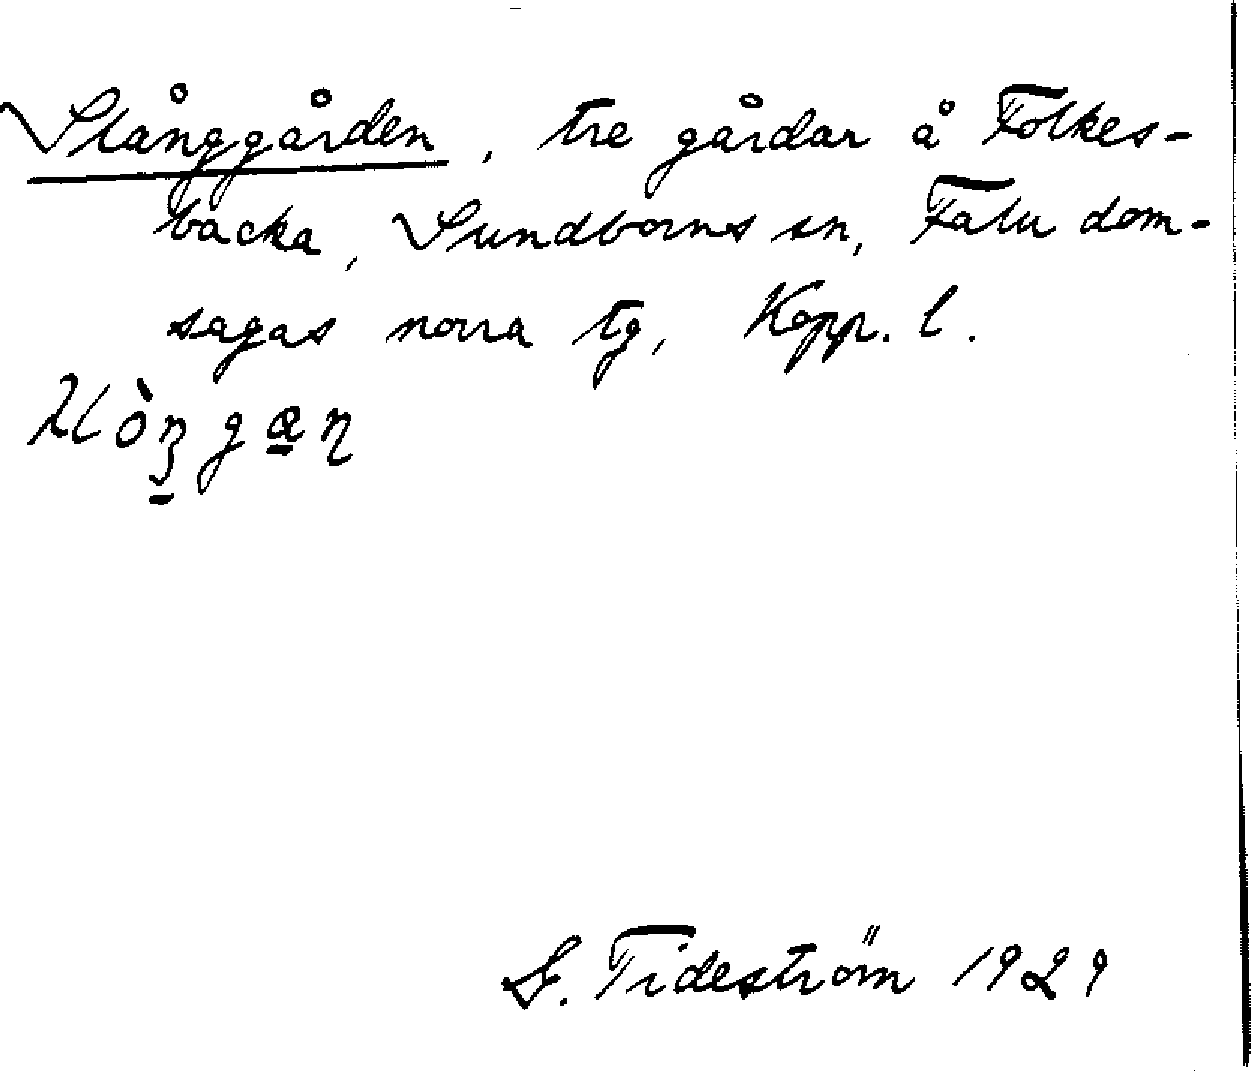 Slånggården, tre gårdar å Folkes-
backa, Sundborns sn, Falu dom-
sagas norra tg, Kopp. l.
G. Tideström 1929